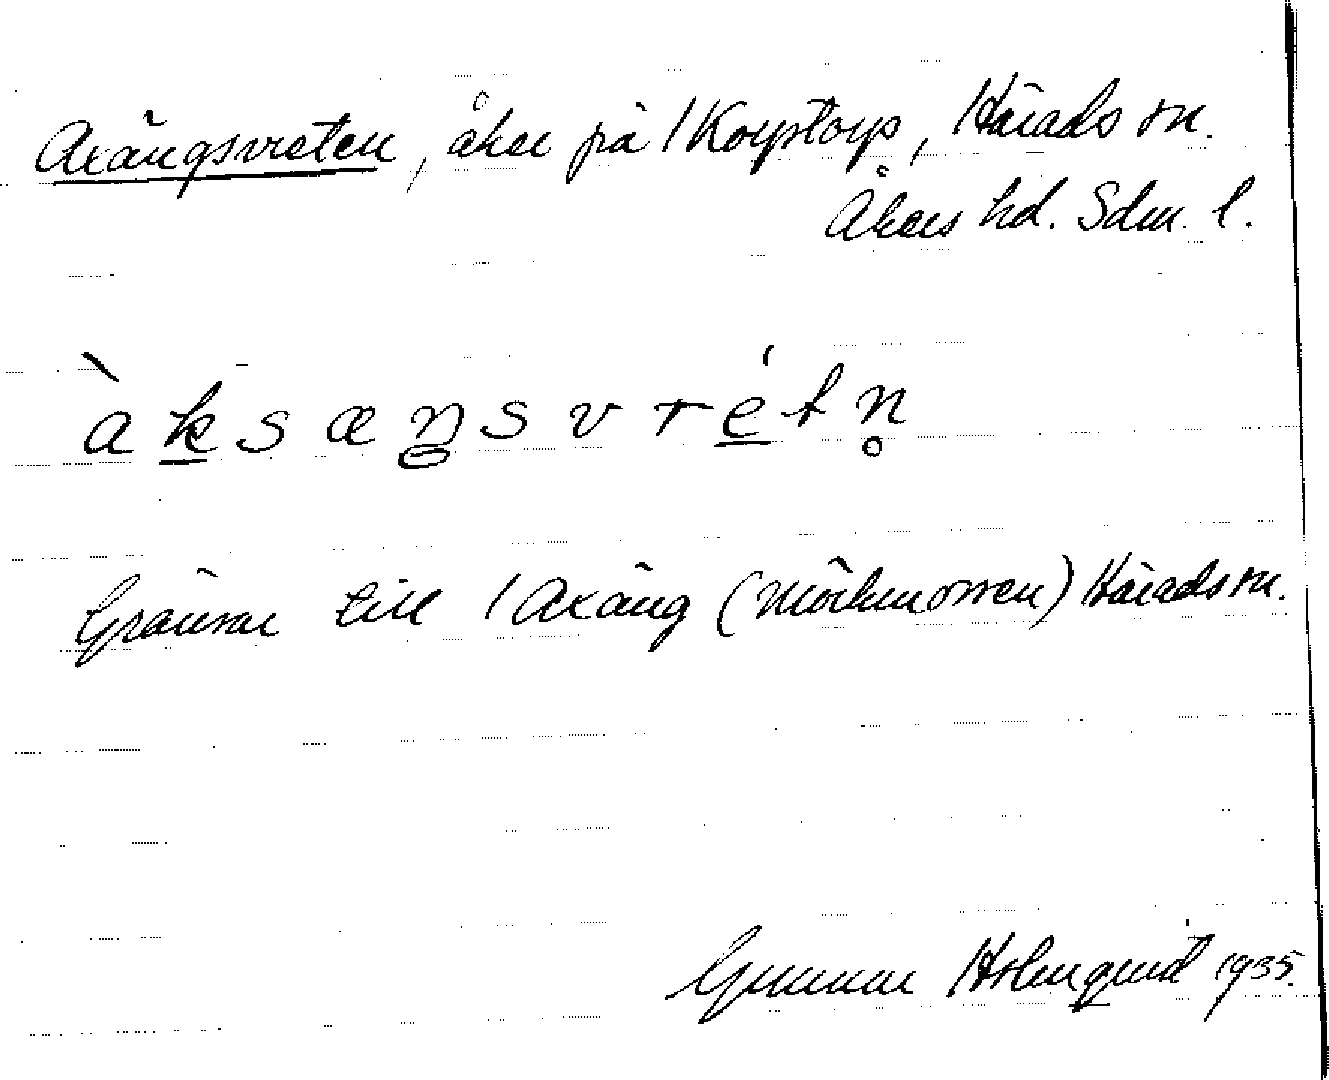 Axängsvreten, åker på /Korpstorp, Härads sn.
Åkers hd. Sdm. l.
àksæŋsvrétn̥
Gränsar till /Axäng (Mörkmossen) Härads sn.
Gunnar Holmquist 1935.